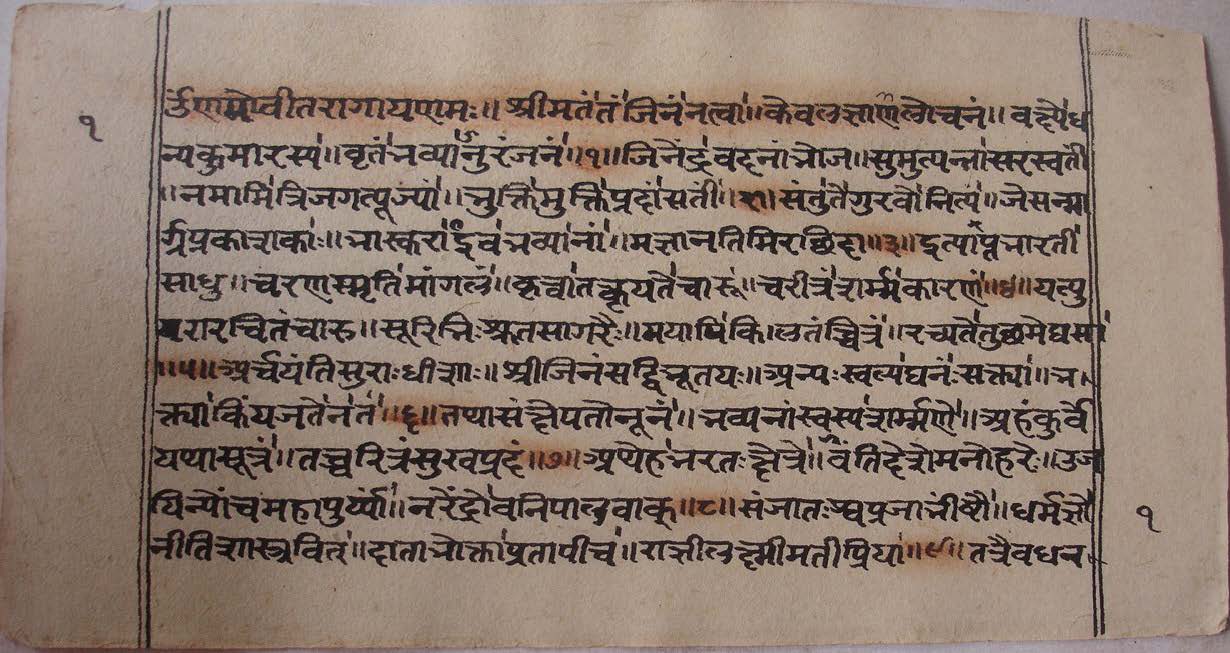 र्दणमोवीतरागायणमः॥ श्रीमतंतंजिनंनत्वा॥ केवलज्ञाणलोचनं॥ वक्ष्येध
१
न्यकुमारस्य॥ वृतंभव्यानुरंजनं॥ १॥ जिनेंद्रवदनांभोज॥ सुमुत्पन्नांसरस्वतीं
॥ नमामित्रिजगत्पूज्यां॥ भुक्तिमुक्तिप्रदांसतीं॥ २॥ संतुतेगुरवोनित्यं॥ जेसन्मा
र्गप्रकाशकाः॥ भास्कराइवभव्यानां॥ मज्ञानतिमिरछिदा॥ ३॥ भारती
साधु॥ चरणस्मृतिमांगलं॥ कृत्वातत्कथयतेचारू॥ चरीत्रंशर्म्मकारणं॥ ४॥ यत्पु
रारचितंचारु॥ सूरिभिःश्रुतसागरैः॥ मयापिकिलतंच्चित्रं॥ रच्यतेतुछमेघसा
॥ ५॥ अर्चयंतिसुराःधीशाः॥ श्रीजिनंसद्विभूतयः॥ अन्यःस्वल्पघनंःसक्त्या॥ भ
क्त्याकिंयजतेनतं॥ ६॥ तथासंक्षेपतोनूनं॥ भव्यनांस्वस्यशर्म्मणे॥ अहंकुर्वे
यथासूत्रं॥ तच्चरित्रंसुखप्रदं॥ ७॥ अथेहभरतःक्षेत्रे॥ वंतिदेशेमनोहरे॥ उज
यिन्यांचमहापुर्य्यां॥ नरेंद्रोवनिपालवाक्॥ ८॥ संजातःश्चप्रजाभीष्टो॥ धर्मज्ञो
१
नीतिशास्त्रवित्॥ दाताभोक्ताप्रतापीच॥ राज्ञीलक्ष्मीमतीप्रिया॥ ९॥ तत्रैवधन